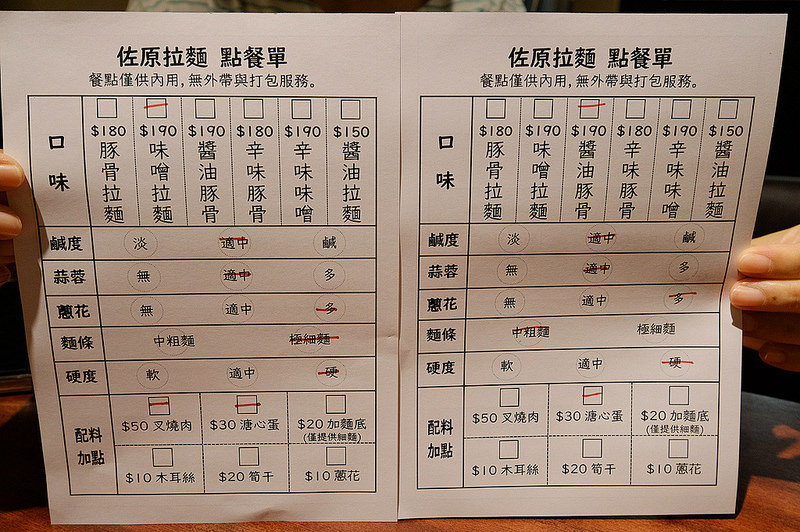 佐原拉麵 點餐單
餐點僅供內用,無外帶與打包服務。
口味
$180 $190 $190 $180 $190 $150
豚骨拉麵 味噌拉麵 醬油豚骨 辛味豚骨 辛味味噌 醬油拉麵
鹹度 淡 適中 鹹
蒜蓉 無 適中 多
蔥花 無 適中 多
麵條 中粗麵 極細麵
硬度 軟 適中 硬
配料加點
$50 叉燒肉 $30 溏心蛋 $20 加麵底
(僅提供細麵)
$10 木耳絲 $20 筍干 $10 蔥花
佐原拉麵 點餐單
餐點僅供內用,無外帶與打包服務。
口味
$180 $190 $190 $180 $190 $150
豚骨拉麵 味噌拉麵 醬油豚骨 辛味豚骨 辛味味噌 醬油拉麵
鹹度 淡 適中 鹹
蒜蓉 無 適中 多
蔥花 無 適中 多
麵條 中粗麵 極細麵
硬度 軟 適中 硬
配料加點
$50 叉燒肉 $30 溏心蛋 $20 加麵底
(僅提供細麵)
$10 木耳絲 $20 筍干 $10 蔥花